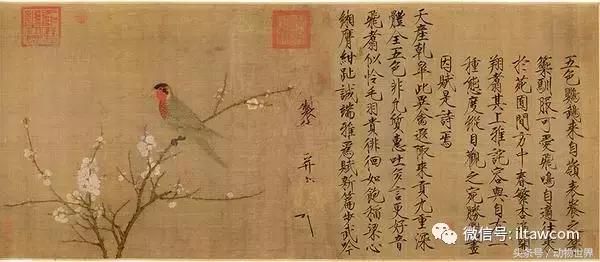 五色鸚鵡來自嶺表養之禁
籞馴服可愛飛鳴自適往來
於苑囿間方中春繁杏遍開
翔翥其上雅詫容與自有一
種態度縱目觀之宛勝圖畫
因賦是詩焉
天產乾皋此異禽遐陬來貢九重深
體全五色非凡質惠吐多言更好音
飛翥似憐毛羽貴徘徊如飽稻粱心
緗膺紺趾誠端雅為賦新篇步武吟
微信号: iltawcom
头条号/动物世界